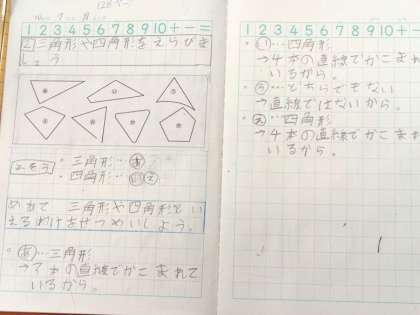 128ページ
1 2 3 4 5 6 7 8 9 10 + − =
② 三角形や四角形をえらびま
しょう
よそう ・三角形…あ
・四角形…いえ
めあて 三角形や四角形とい
えるわけをせつめいしよう。
・あ…三角形
→3本の直線でかこまれて
いるから。
1 2 3 4 5 6 7 8 9 10 +
・い…四角形
→4本の直線でかこまれて
いるから。
・う…どちらでもない
→直線ではないから。
・え…四角形
→4本の直線でかこまれて
いるから。